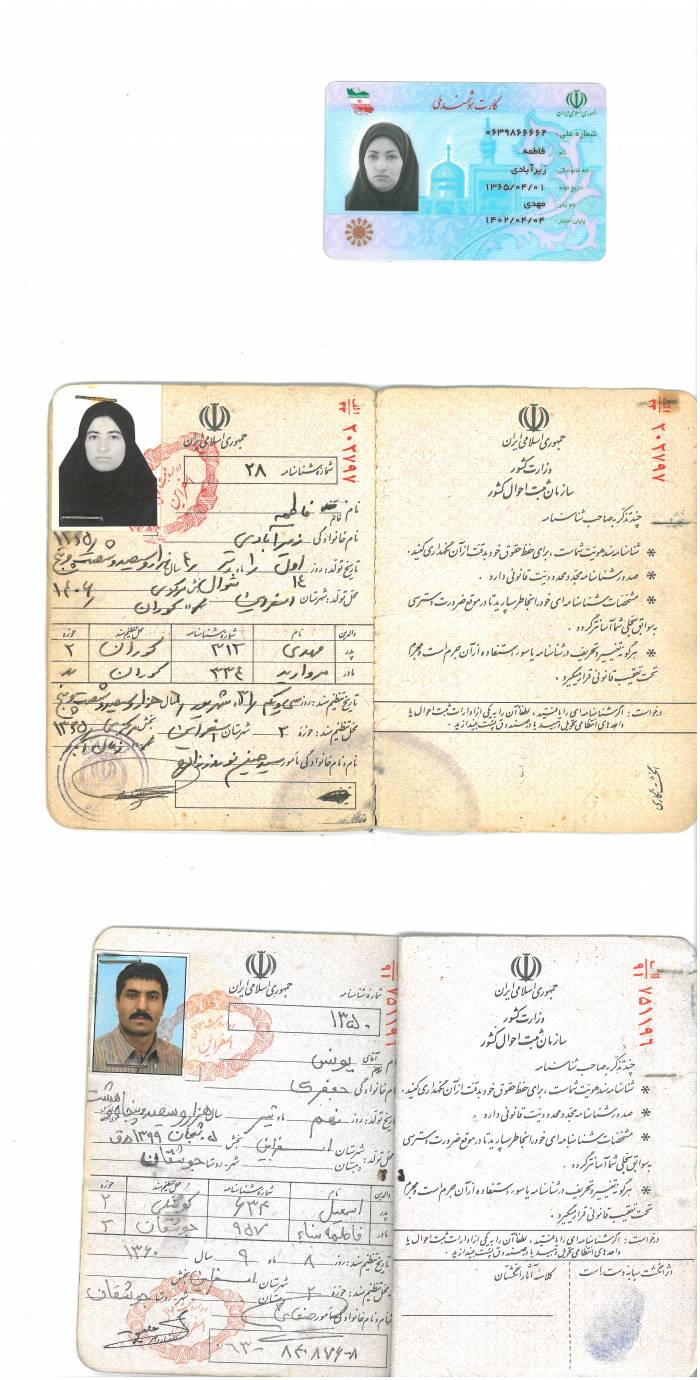 کارت هوشمند ملی
جمهوری اسلامی ایران
شماره ملی: ۰۶۳۹۸۶۶۶۶۲
نام: فاطمه
نام خانوادگی: زیرآبادی
تاریخ تولد: ۱۳۶۵/۰۴/۰۱
نام پدر: مهدی
پایان اعتبار: ۱۴۰۲/۰۴/۰۴
الف
۲۲
۲۰۲۷۹۷
جمهوری اسلامی ایران
شماره شناسنامه ۲۸
نام خانم فاطمه
نام خانوادگی: زیرآبادی
تاریخ تولد: روز اول ماه تیر سال هزار و سیصد و شصت و پنج
محل تولد: شهرستان اسفراین بخش مرکزی کوران
والدین نام شماره شناسنامه محل تنظیم سند حوزه
پدر مهدی ۳۱۲ کوران ۲
مادر مروارید ۳۳۴ کوران
تاریخ تنظیم سند: روز سی و یکم ماه شهریور سال هزار و سیصد و شصت و پنج
محل تنظیم سند: حوزه ۲ شهرستان اسفراین بخش مرکزی
نام و نام خانوادگی مأمور
الف
۲۲
۲۰۲۷۹۷
جمهوری اسلامی ایران
وزارت کشور
سازمان ثبت احوال کشور
چند تذکر به صاحب شناسنامه
* شناسنامه سند هویت شماست، برای حفظ حقوق خود به دقت از آن نگهداری کنید.
* صدور شناسنامه مجدد محدودیت قانونی دارد.
* مشخصات شناسنامه‌ای خود را بخاطر سپارید تا در موقع ضرورت دسترسی
به سوابق سجلی شما آسانتر گردد.
* هرگونه تغییر و تحریف در شناسنامه یا سوء استفاده از آن جرم است و مجرم
تحت تعقیب قانونی قرار میگیرد.
درخواست: اگر شناسنامه‌ای را یافتید، لطفاً آن را به یکی از ادارات ثبت احوال یا
واحدهای انتظامی تحویل دهید یا در صندوق پست بیندازید.
انگشت نگاری
۷۵۱۱۹۶
جمهوری اسلامی ایران
شماره شناسنامه
۱۳۵۰
نام آقای یونس
نام خانوادگی جعفری
تاریخ تولد: روز نهم ماه تیر سال هزار و سیصد و پنجاه و هشت
محل تولد: شهرستان اسفراین بخش
والدین نام شماره شناسنامه محل تنظیم سند حوزه
پدر اسمعیل ۶۳۴ ۲
مادر فاطمه نساء ۹۵۷ جوشقان ۲
تاریخ تنظیم سند: روز ۸ ماه ۹ سال ۱۳۶۰
محل تنظیم سند: حوزه ۲ شهرستان اسفراین بخش
نام و نام خانوادگی مأمور
الف
۹۱
۷۵۱۱۹۶
جمهوری اسلامی ایران
وزارت کشور
سازمان ثبت احوال کشور
چند تذکر به صاحب شناسنامه
* شناسنامه سند هویت شماست، برای حفظ حقوق خود به دقت از آن نگهداری کنید.
* صدور شناسنامه مجدد محدودیت قانونی دارد.
* مشخصات شناسنامه‌ای خود را بخاطر سپارید تا در موقع ضرورت دسترسی
به سوابق سجلی شما آسانتر گردد.
* هرگونه تغییر و تحریف در شناسنامه یا سوء استفاده از آن جرم است و مجرم
تحت تعقیب قانونی قرار میگیرد.
درخواست: اگر شناسنامه‌ای را یافتید، لطفاً آن را به یکی از ادارات ثبت احوال یا
واحدهای انتظامی تحویل دهید یا در صندوق پست بیندازید.
اثر انگشت سبابه دست است
کلاسه آثار انگشتان